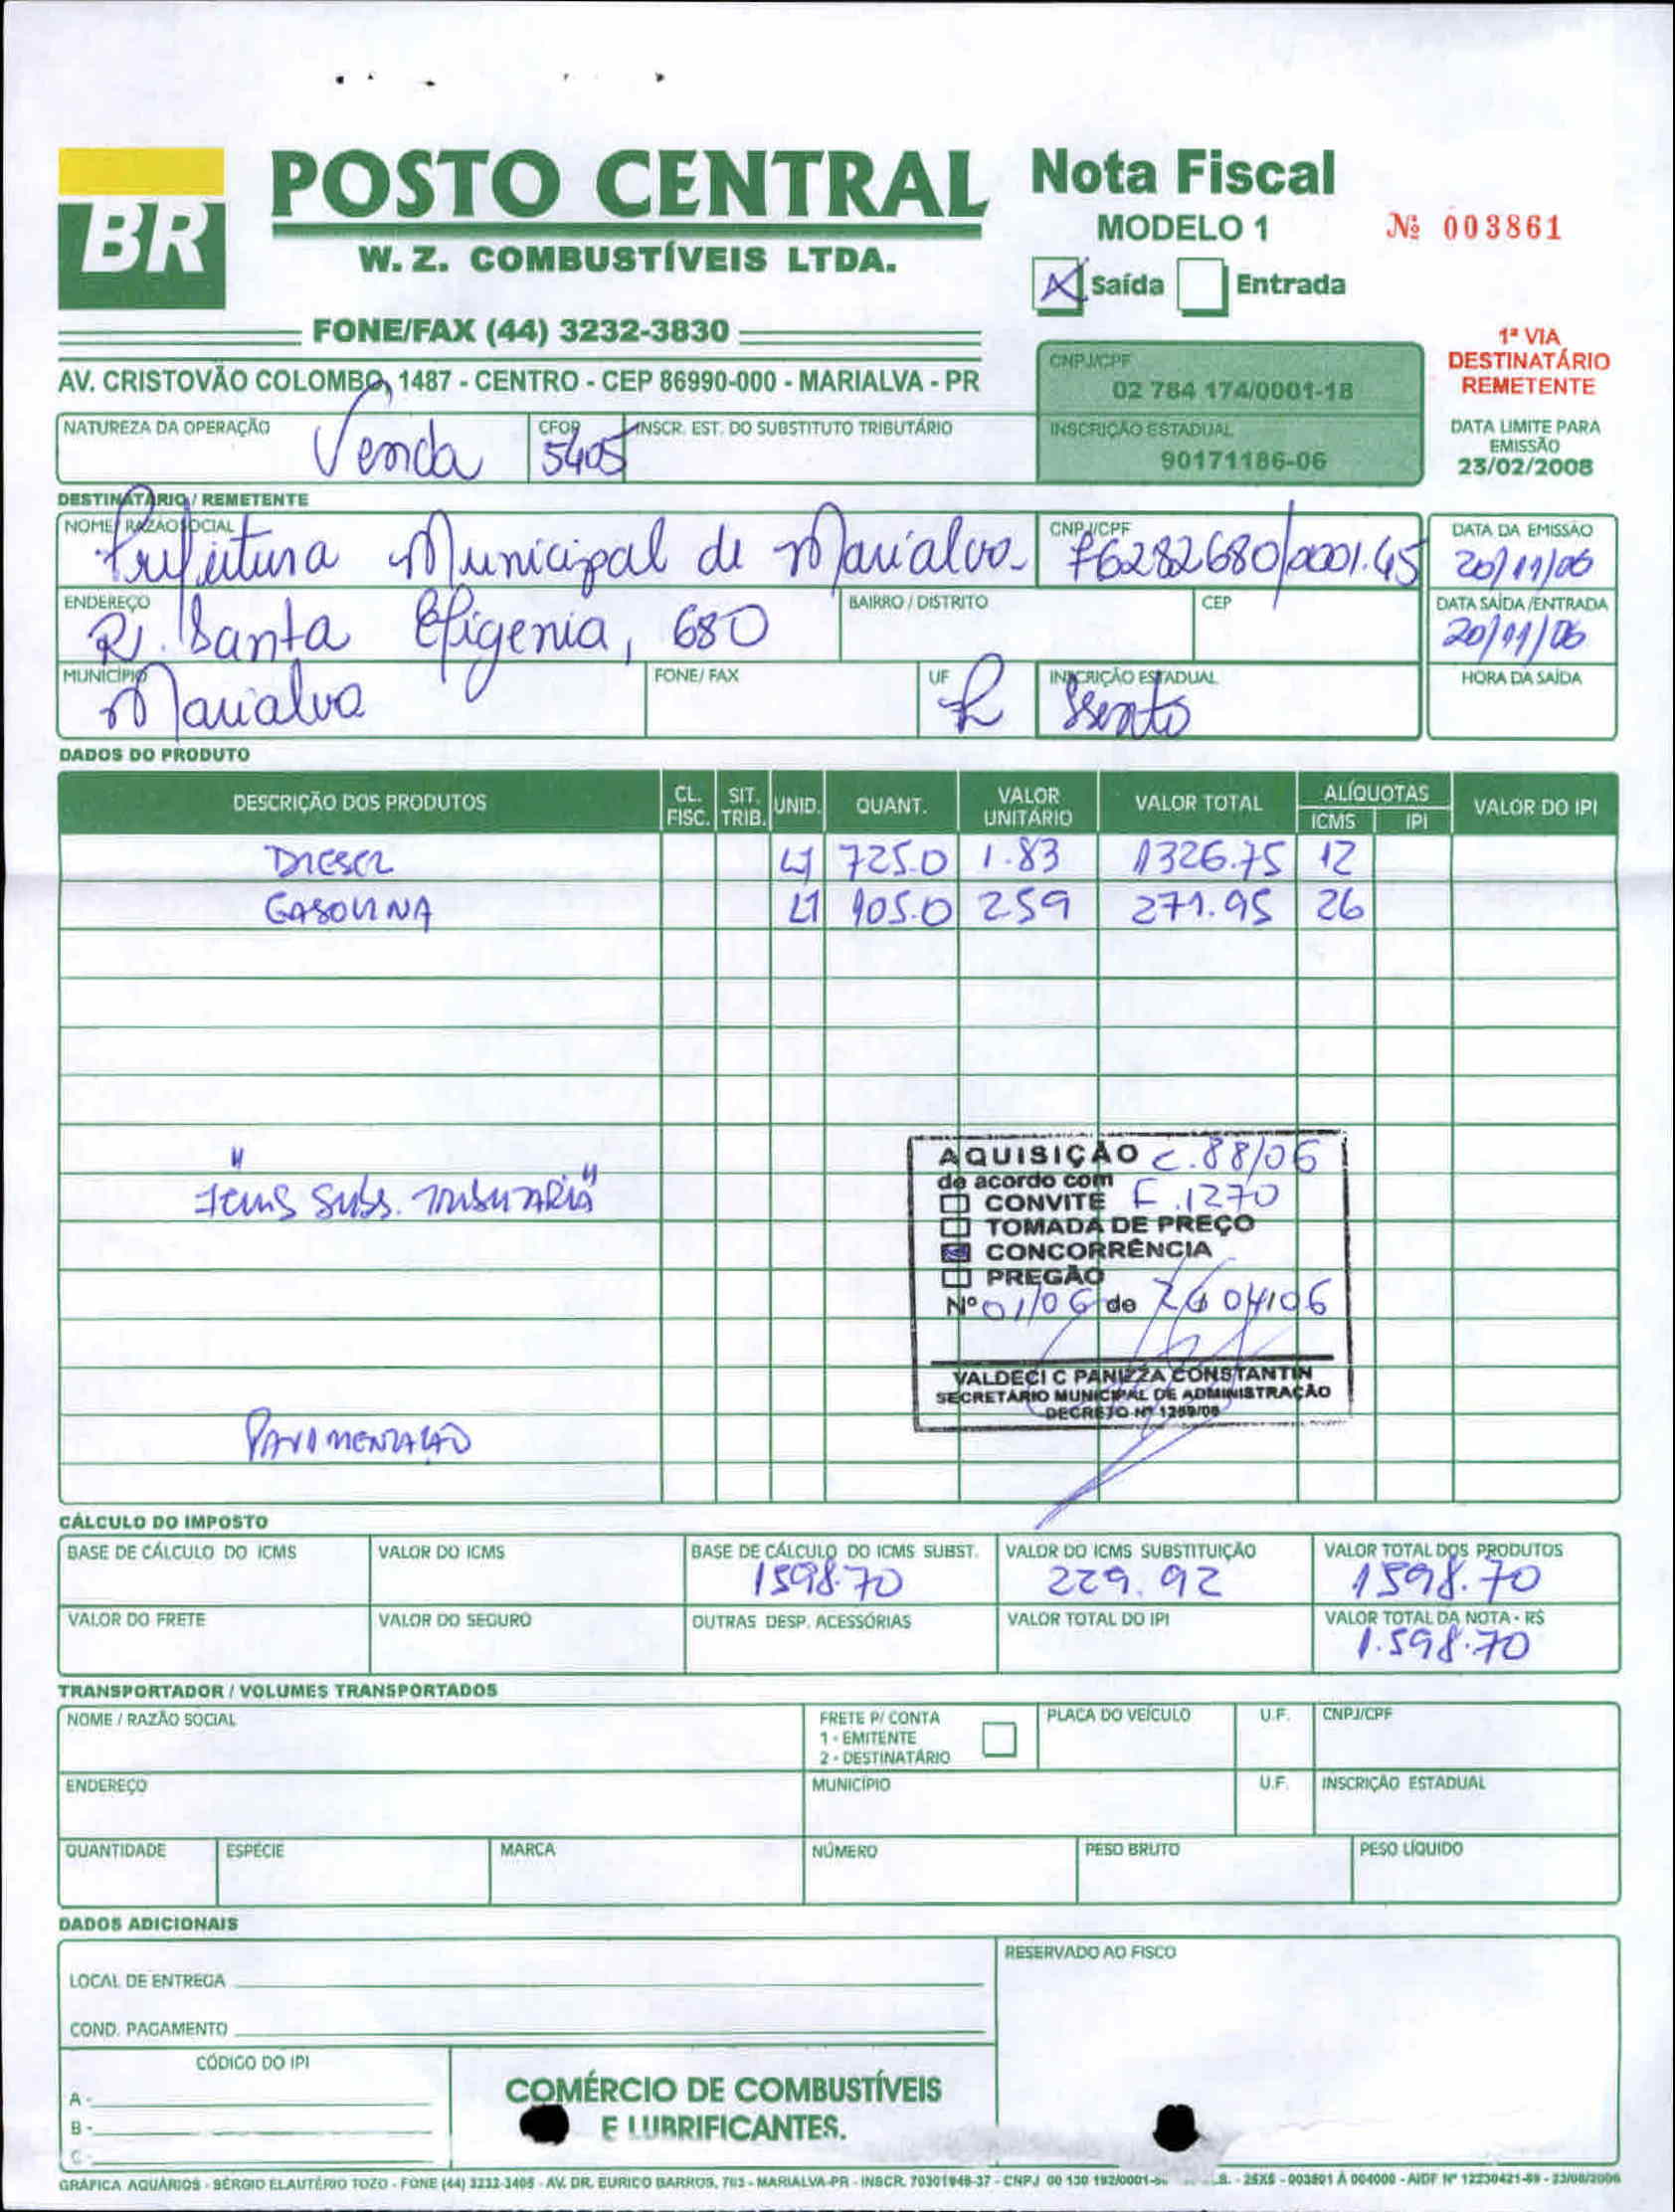 BR
POSTO CENTRAL
W. Z. COMBUSTÍVEIS LTDA.
FONE/FAX (44) 3232-3830
AV. CRISTOVÃO COLOMBO, 1487 - CENTRO - CEP 86990-000 - MARIALVA - PR
Nota Fiscal
MODELO 1
Nº 003861
X Saída Entrada
1ª VIA
DESTINATÁRIO
REMETENTE
CNPJ/CPF
02 784 174/0001-18
INSCRIÇÃO ESTADUAL
90171186-06
DATA LIMITE PARA
EMISSÃO
23/02/2008
NATUREZA DA OPERAÇÃO Venda
CFOP 5405
INSCR. EST. DO SUBSTITUTO TRIBUTÁRIO
DESTINATÁRIO / REMETENTE
NOME/ RAZÃO SOCIAL
Prefeitura Municipal de Marialva
CNPJ/CPF
76282680/0001.45
DATA DA EMISSÃO
20/11/06
ENDEREÇO
R. Santa Efigenia, 680
BAIRRO / DISTRITO
CEP
DATA SAÍDA /ENTRADA
20/11/06
MUNICÍPIO
Marialva
FONE/ FAX
UF
INSCRIÇÃO ESTADUAL
Isento
HORA DA SAÍDA
DADOS DO PRODUTO
DESCRIÇÃO DOS PRODUTOS CL. FISC. SIT. TRIB. UNID. QUANT. VALOR UNITÁRIO VALOR TOTAL ALÍQUOTAS ICMS IPI VALOR DO IPI
DIESEL LT 725.0 1.83 1326.75 12
GASOLINA LT 105.0 259 271.95 26
"ICMS SUBS. TRIBUTARIA"
AQUISIÇÃO C.88/06
de acordo com
CONVITE F.1270
TOMADA DE PREÇO
CONCORRÊNCIA
PREGÃO
Nº 01/06 de 26 04/06
VALDECI C PANIZZA CONSTANTIN
SECRETÁRIO MUNICIPAL DE ADMINISTRAÇÃO
DECRETO Nº 1259/06
PAVIMENTAÇÃO
CÁLCULO DO IMPOSTO
BASE DE CÁLCULO DO ICMS
VALOR DO ICMS
BASE DE CÁLCULO DO ICMS SUBST.
1598.70
VALOR DO ICMS SUBSTITUIÇÃO
229.92
VALOR TOTAL DOS PRODUTOS
1598.70
VALOR DO FRETE
VALOR DO SEGURO
OUTRAS DESP. ACESSÓRIAS
VALOR TOTAL DO IPI
VALOR TOTAL DA NOTA - R$
1.598.70
TRANSPORTADOR / VOLUMES TRANSPORTADOS
NOME / RAZÃO SOCIAL
FRETE P/ CONTA
1 - EMITENTE
2 - DESTINATÁRIO
PLACA DO VEÍCULO
U.F.
CNPJ/CPF
ENDEREÇO
MUNICÍPIO
U.F.
INSCRIÇÃO ESTADUAL
QUANTIDADE
ESPÉCIE
MARCA
NÚMERO
PESO BRUTO
PESO LÍQUIDO
DADOS ADICIONAIS
LOCAL DE ENTREGA
COND. PAGAMENTO
RESERVADO AO FISCO
CÓDIGO DO IPI
A -
B -
C -
COMÉRCIO DE COMBUSTÍVEIS
E LUBRIFICANTES.
GRÁFICA AQUÁRIOS - SÉRGIO ELAUTÉRIO TOZO - FONE (44) 3232-3405 - AV. DR. EURICO BARROS, 703 - MARIALVA-PR - INSCR. 70301948-37 - CNPJ 00 130 192/0001- - 25X5 - 003501 À 004000 - AIDF Nº 12230421-89 - 23/08/2006